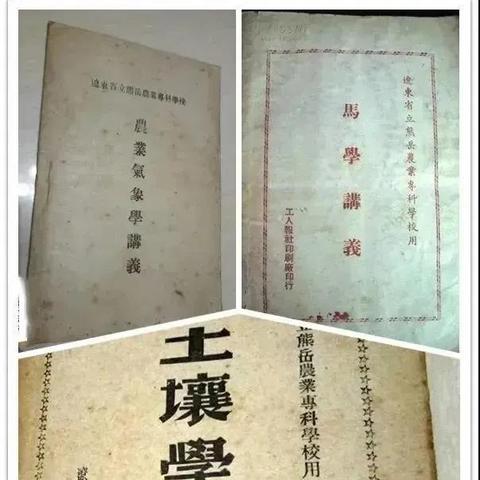 遼東省立熊岳農業專科學校
農業氣象學講義
遼東省立熊岳農業專科學校用
馬學講義
工人報社印刷廠印行
立熊岳農業專科學校用
土壤學
遼